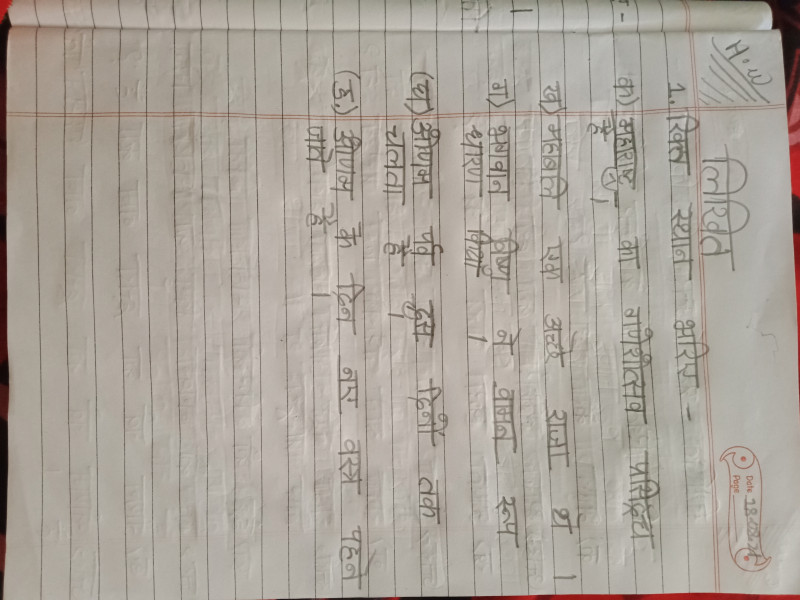 H.W
Date 18.08.25
Page
लिखित
1. रिक्त स्थान भरिए -
क) महाराष्ट्र का गणेशोत्सव प्रसिद्ध
है।
ख) महाबलि एक अच्छे राजा थे ।
ग) भगवान विष्णु ने वामन रूप
धारण किया ।
(घ) ओणम पर्व दस दिनों तक
चलता है ।
(ङ) ओणम के दिन नए वस्त्र पहने
जाते है ।